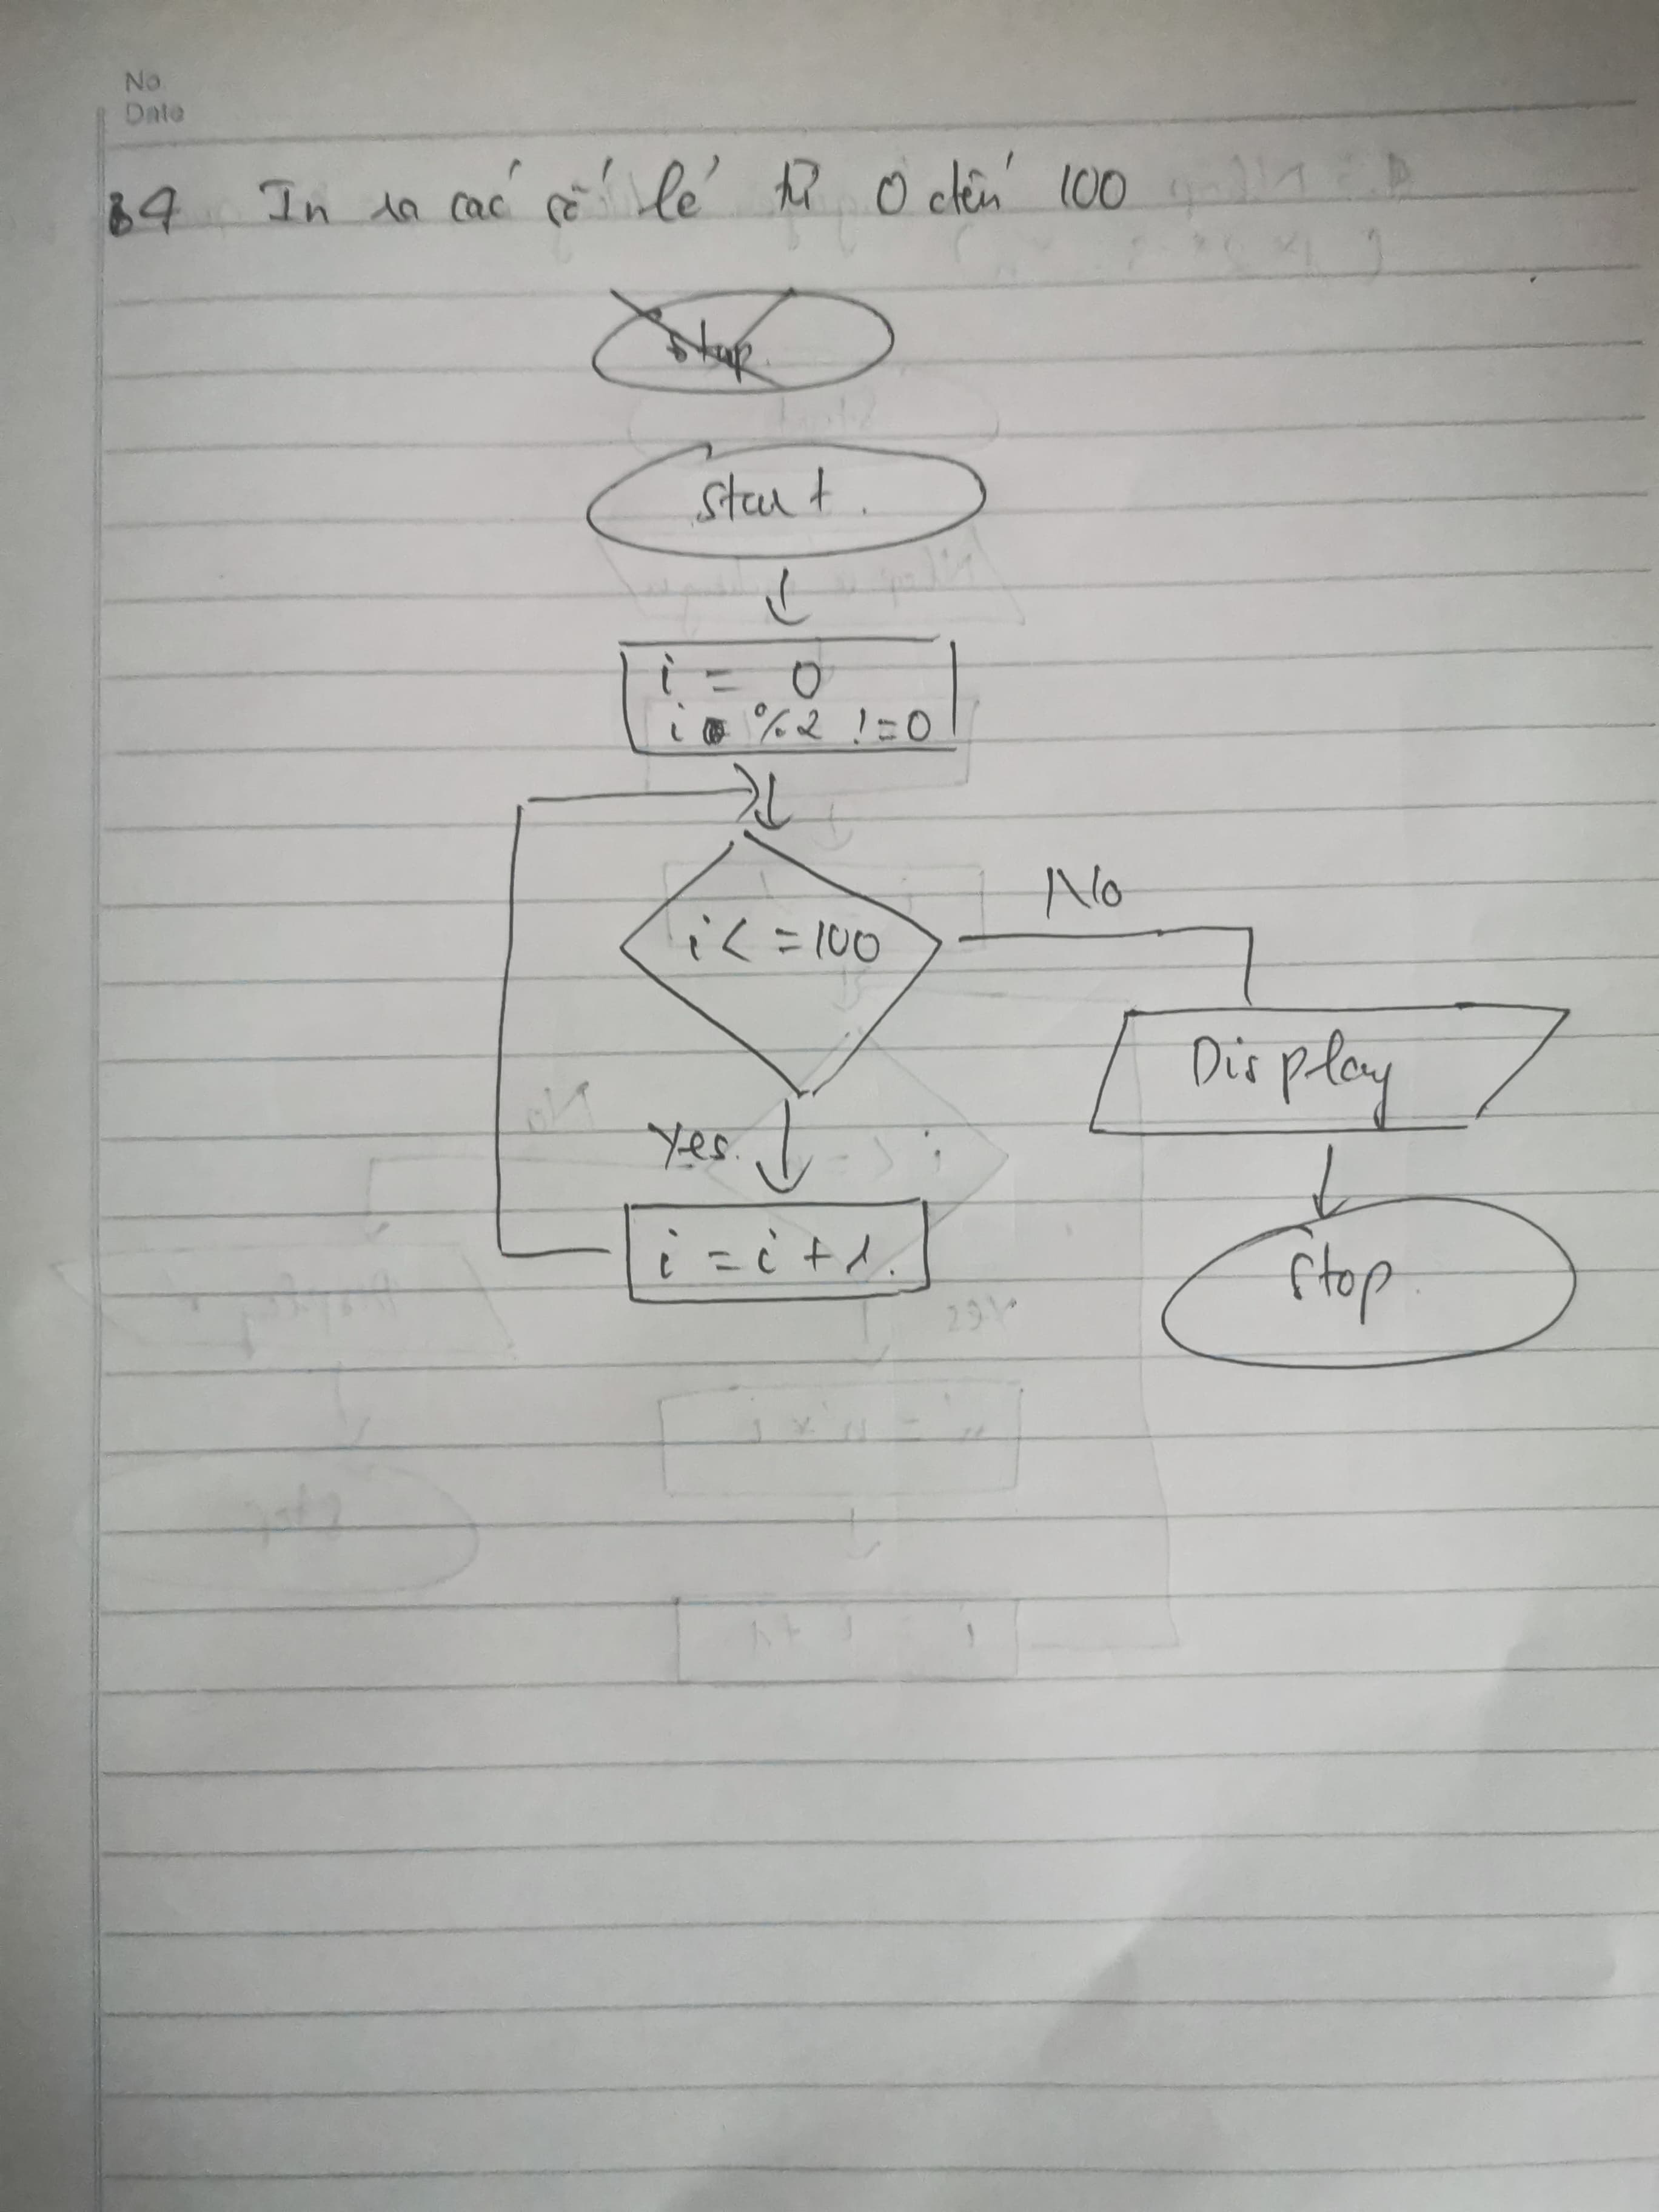 No
Date
B4 In ra các số lẻ từ 0 đến 100
Stop.
Start.
i = 0
i % 2 != 0
i < = 100
No
Display
Yes.
i = i + 1.
Stop.